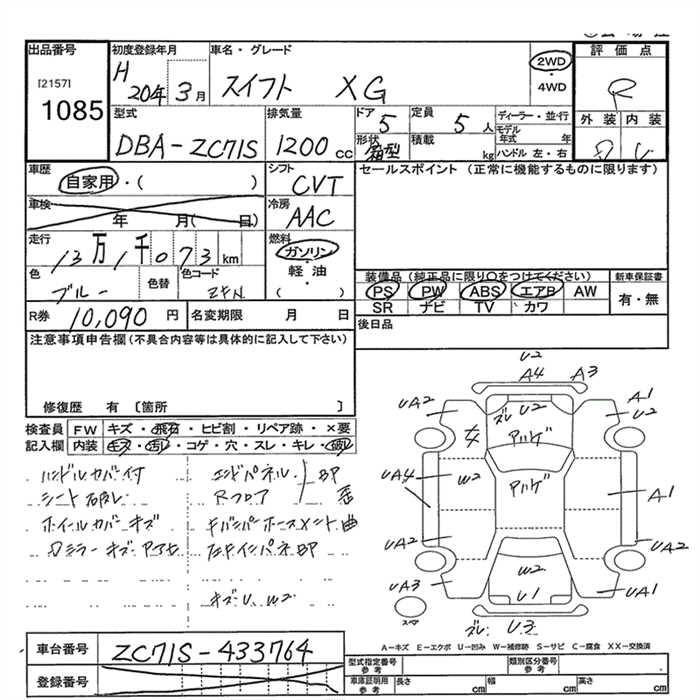 出品番号
[2157]
1085
初度登録年月
H 20年 3月
車名・グレード
スイフト XG
2WD
・
4WD
評価点
R
外装 内装
型式
DBA-ZC71S
排気量
1200 cc
ドア
5
形状
箱型
定員
5 人
積載
kg
ディーラー・並行
モデル年式 年
ハンドル 左・右
車歴
自家用・( )
シフト
CVT
セールスポイント (正常に機能するものに限ります)
車検
年 月( 日)
冷房
AAC
走行
13万1千073 km
燃料
ガソリン
・
軽油
( )
色
ブルー
色替
色コード
R券 10,090 円
名変期限 月 日
装備品 (純正品に限り○をつけてください)
PS PW ABS エアB AW
SR ナビ TV カワ
新車保証書
有・無
後日品
注意事項申告欄 (不具合内容等は具体的に記入して下さい)
修復歴 有 〔箇所 〕
検査員記入欄
FW キズ・飛石・ヒビ割・リペア跡・×要
内装 キズ・汚レ・コゲ・穴・スレ・キレ・破レ
ハンドルカバー付
シート破レ
ホイールカバーキズ
エンドパネル
Rフロア
BP
キズ U、W2
U2
A4 A3
UA2
A1
U2
ズレ U2
アハゲ
W2
アハゲ
UA4
A1
UA2
UA2
UA3
W2
U1
UA1
ズレ U3
スペア
A－キズ E－エクボ U－凹み W－補修跡 S－サビ C－腐食 XX－交換済
車台番号 ZC71S-433764
登録番号
型式指定番号
参考
類別区分番号
参考
車庫証明用
参考
長さ cm
幅 cm
高さ cm